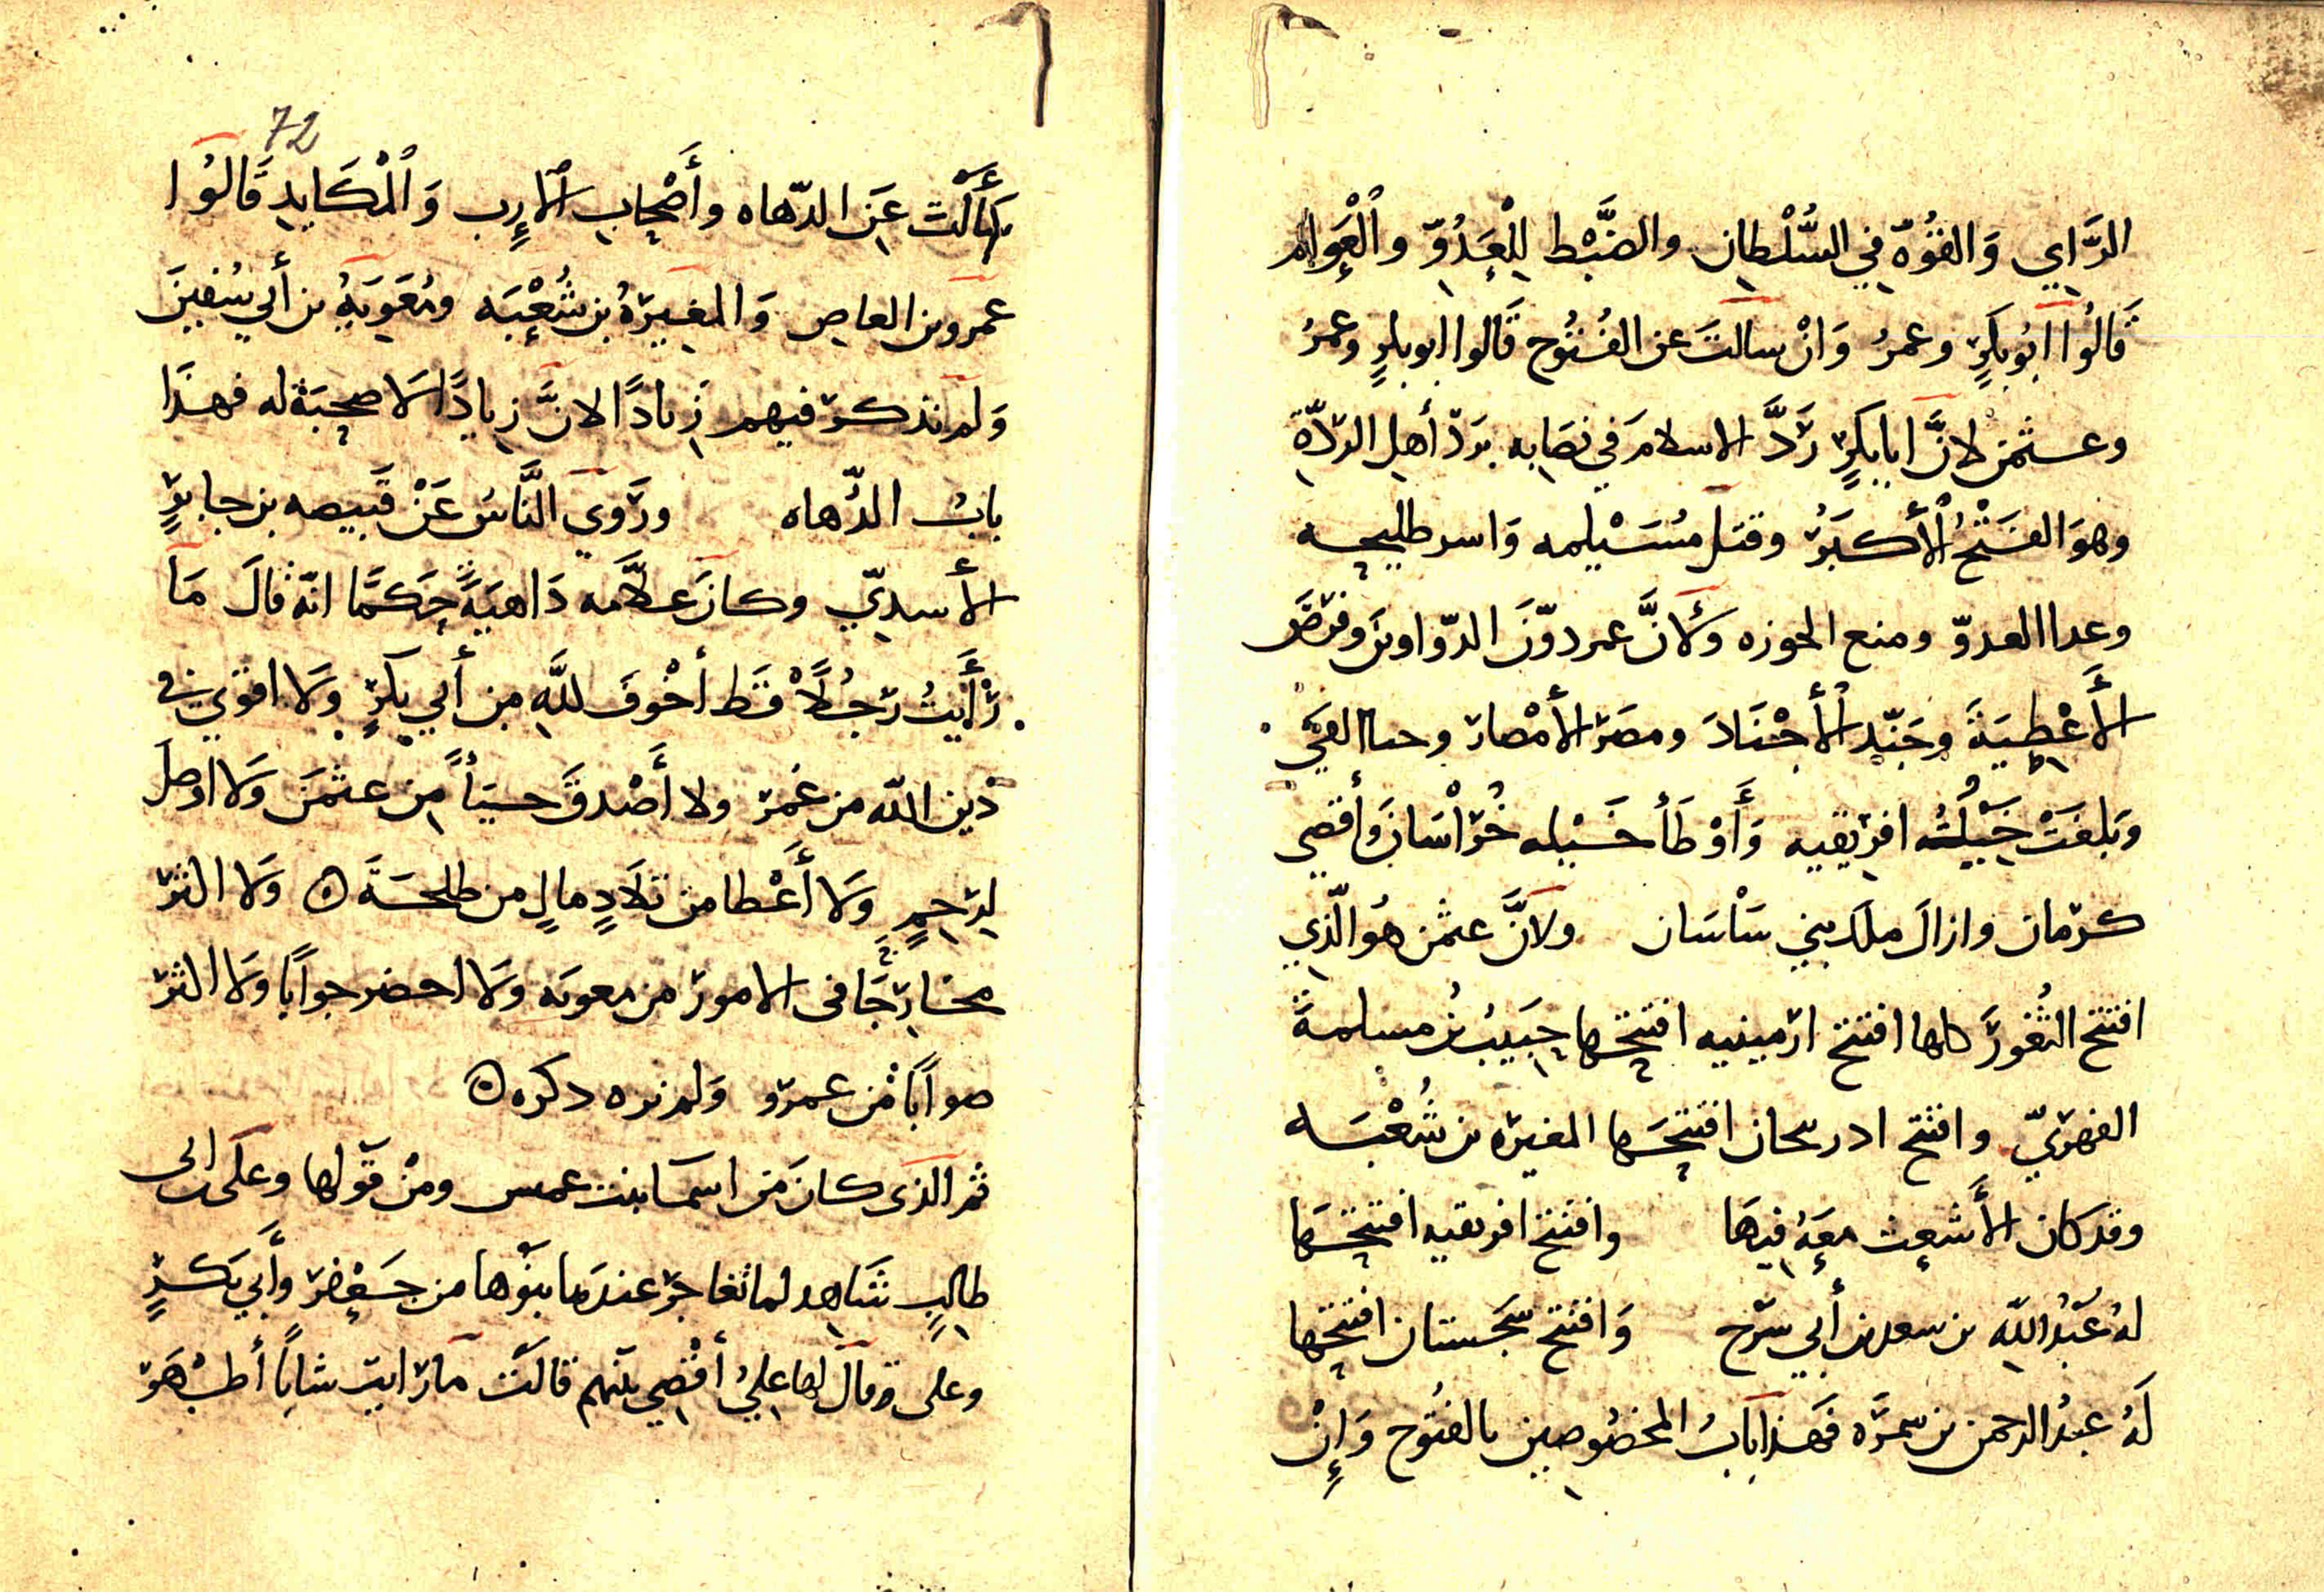 الرَّايِ وَالقُوّة فِي السُّلْطانِ والضَّبْط لِلْعَدُوِّ والْعَوَام
قَالُوا ابُو بكرٍ وعمرُ وَانْ سالتَ عن الفُتُوح قَالوا ابو بكرٍ وعمرُ
وعثمٰن لانَّ ابا بكرٍ رَدَّ الاسلامَ في نصَابِه بردّ أهلِ الردّةِ
وهوَ الفَتْحُ الأكبَرُ وقتل مُسَيْلمه وَاسر طليحه
وعدا العدوّ ومنع الحوزه ولأنَّ عمر دوّنَ الدّواوينَ وفرَض
الأَعْطِيَةَ وجَنّدِ الأجْنَادَ ومصَر الأمْصار وحبا الفيَ
وَبلغَتْ خَيْلُهُ افريقيه وَأَوْطَأ خَيْله خُرَاسَانَ وأقصِي
كرمان وازالَ ملك بني سَاسَان ولانَّ عثمٰن هُو الّذِي
افتتح الثُغورَ كلها افتتح ارمينيه افتتحها حبَيبُ بن مسلمةَ
الفهريّ وافتتح ادربيحان افتتحَها المغيره بن شُعْبَه
وقد كان الأَشعِث معَهُ فيهَا وافتتح افريقيه افتتحَها
لهُ عَبْدُ اللّهِ بن سعد بن أبي سرَح وَافتتح سجَستان افتتحها
لَهُ عبدُ الرحمن بن سمرَه فَهذا بَابُ المخصُوصِين بالفتُوح وَإِنْ
72
سَأَلْتَ عَن الدّهاه وأَصْحابِ الارِب وَالْمَكَايدِ قَالُوا
عمرو بن العاص وَالمغيَرةُ بن شُعْبَه ومُعَويَهُ بن أبي سُفيَنَ
وَلم نذكر فيهم زيادًا لانَّ زيادًا لَا صحبَة له فهذَا
بابُ الدُّهاه ورَوي النَّاسُ عَنْ قَبيصه بن جابرٍ
الأسديّ وكانَ علاَّمه دَاهيَةً حَكمًا انّه قالَ مَا
رأَيتُ رَجُلًا قط أخْوفَ للَّهِ من أبي بكرٍ وَلا اقوَي في
دينِ اللّه من عُمَر ولا أَصْدقَ حيَاً من عثمَنَ وَلا اوصلَ
لِرحِمٍ وَلا أَعْطا من تلَادِ مالٍ من طلحَةَ ۞ وَلا اكثر
مخارجًا في الامور من معويَه وَلا احضر جوابًا وَلا اكثر
صوابًا من عمرو وَلم نره دكره ۞
ثمر الذي كانَ من اسمَا بنت عمس ومنْ قوّلها وعلَى ابى
طالبٍ شَاهد لما تفاخر عندَها بنوها من جَعْفر وأَبي بَكرٍ
وعلى وقالَ لها عليُ أقضِي بَينهم قالَت مَا رَايت شابًا أطْهَر